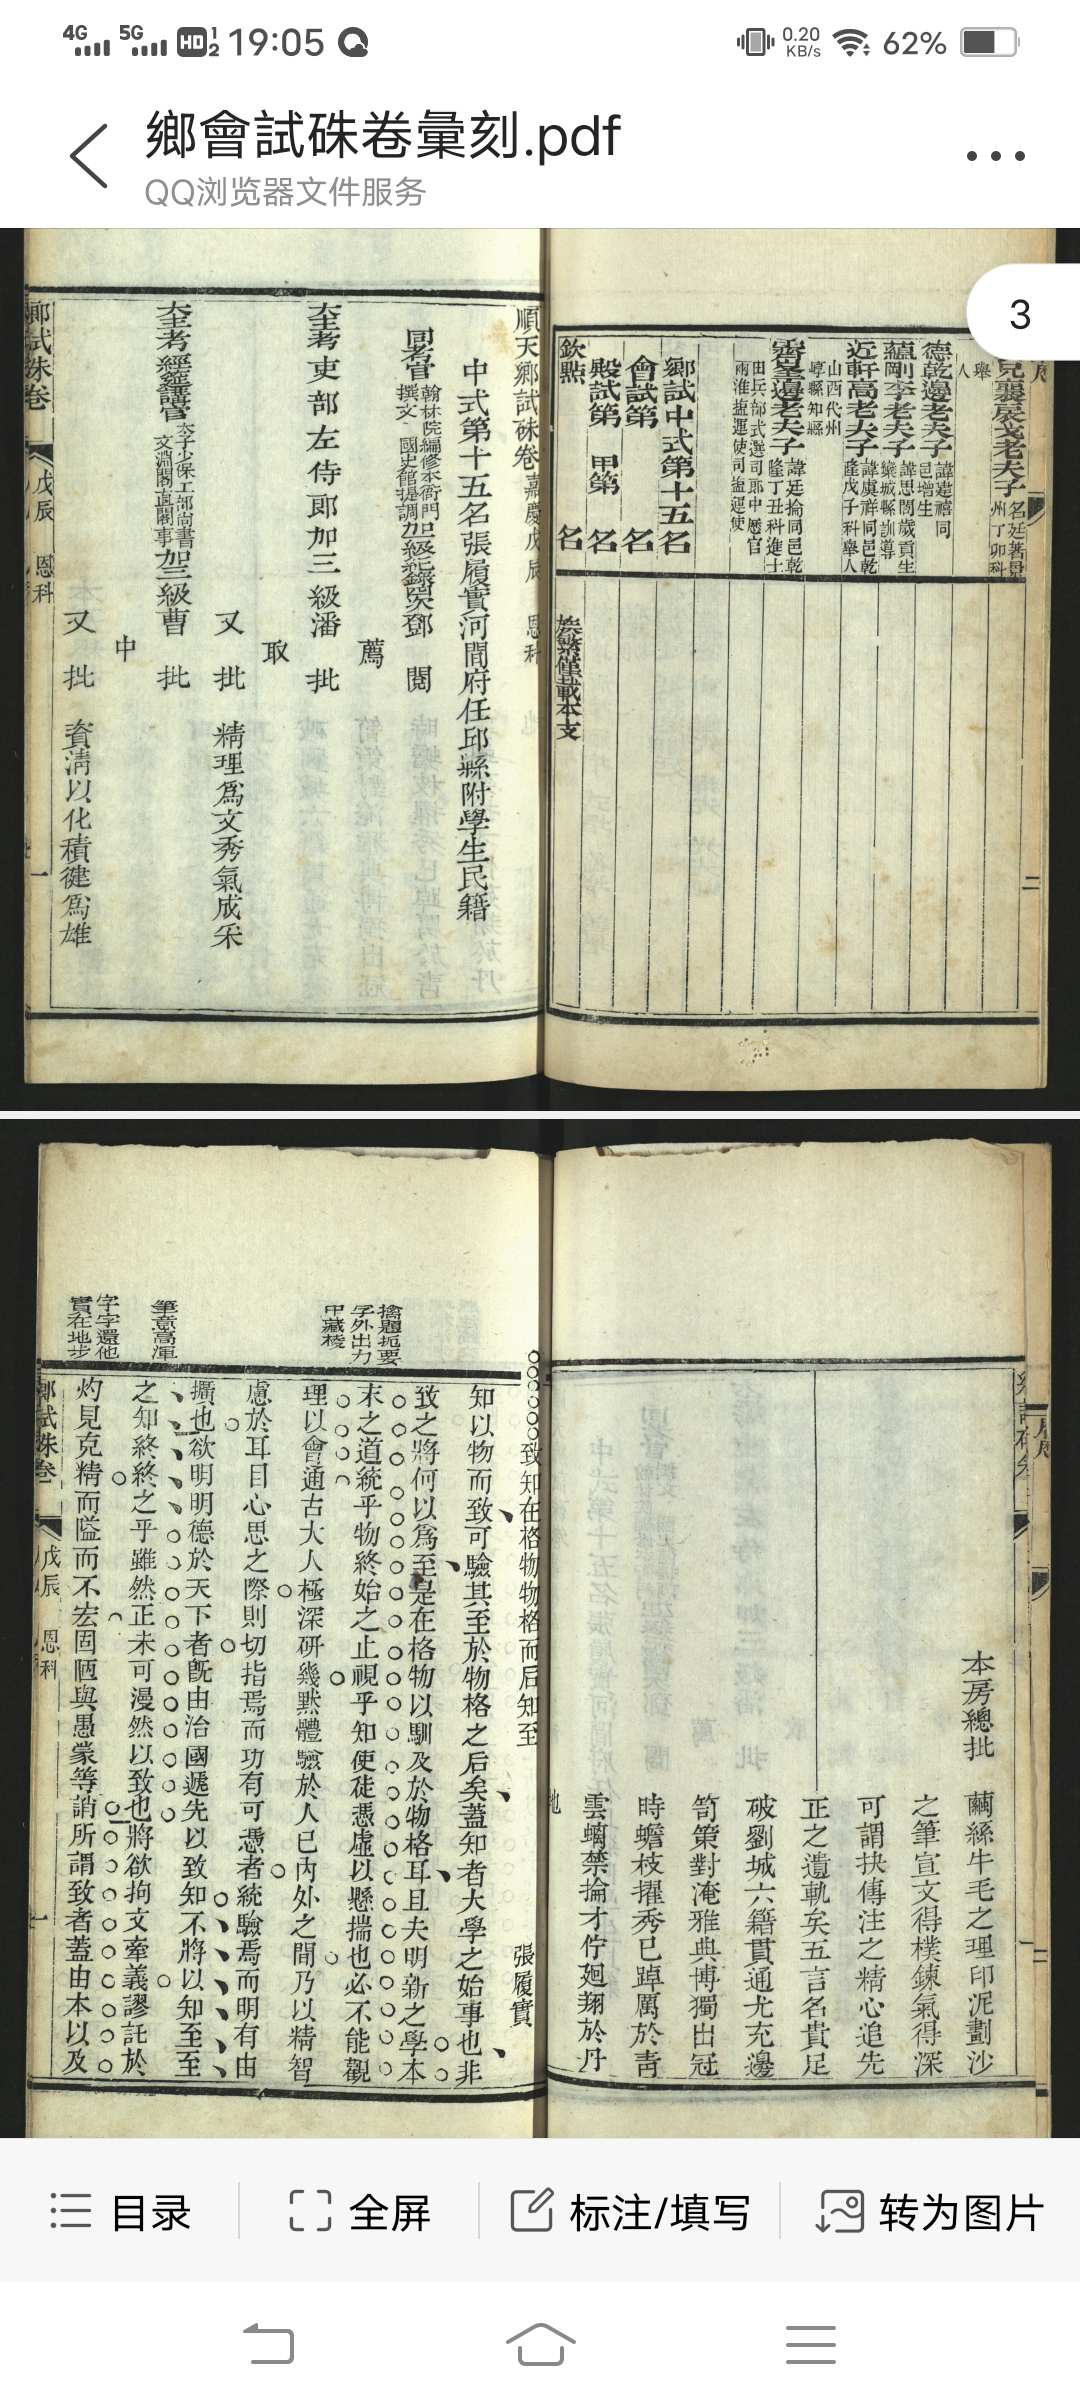 4G 5G HD 1 2 19:05
0.20 KB/s 62%
鄉會試硃卷彙刻.pdf
QQ浏览器文件服务
3
兄襄辰戈老夫子
州丁卯科
舉
人
德乾邊老夫子
諱建禧同
邑增生
蘊剛李老夫子
諱思閣歲貢生
欒城縣訓導
近軒高老夫子
諱虞祥同邑乾
隆戊子科舉人
山西代州
崞縣知縣
霽峯邊老夫子
諱廷掄同邑乾
隆丁丑科進士
田兵部武選司郎中歷官
兩淮鹽運使司鹽運使
鄉試中式第十五名
會試第 名
殿試第 甲第 名
欽點
族繁僅載本支
二
順天鄉試硃卷嘉慶戊辰 恩科
中式第十五名張履實河間府任邱縣附學生民籍
同考官
翰林院編修本衙門
撰文 國史館提調
加級紀錄吳鄧 閱
薦
大主考吏部左侍郎加三級潘 批
取
又批 精理爲文秀氣成采
大主考經筵講官
太子少保工部尚書
文淵閣直閣事
加三級曹 批
中
又批 資清以化積健爲雄
鄉試硃卷
戊辰 恩科
一
本房總批 繭絲牛毛之理印泥劃沙
之筆宣文得樸鍊氣得深
可謂抉傳注之精心追先
正之遺軌矣五言名貴足
破劉城六籍貫通尤充邊
笥策對淹雅典博獨出冠
時蟾枝擢秀已踔厲於青
雲螭禁掄才佇廻翔於丹
地
二
致知在格物物格而后知至
張履實
知以物而致可驗其至於物格之后矣蓋知者大學之始事也非
致之將何以爲至是在格物以馴及於物格耳且夫明新之學本
末之道統乎物終始之止視乎知使徒憑虛以懸揣也必不能觀
理以會通古大人極深研幾默體驗於人已內外之間乃以精智
慮於耳目心思之際則切指焉而功有可憑者統驗焉而明有由
擴也欲明明德於天下者旣由治國遞先以致知不將以知至至
之知終終之乎雖然正未可漫然以致也將欲拘文牽義謬託於
灼見克精而隘而不宏固陋與愚蒙等誚所謂致者蓋由本以及
擒題扼要
字外出力
中藏稜
筆意高渾
字字還他
實在地步
鄉試硃卷
戊辰 恩科
一
目录
全屏
标注/填写
转为图片